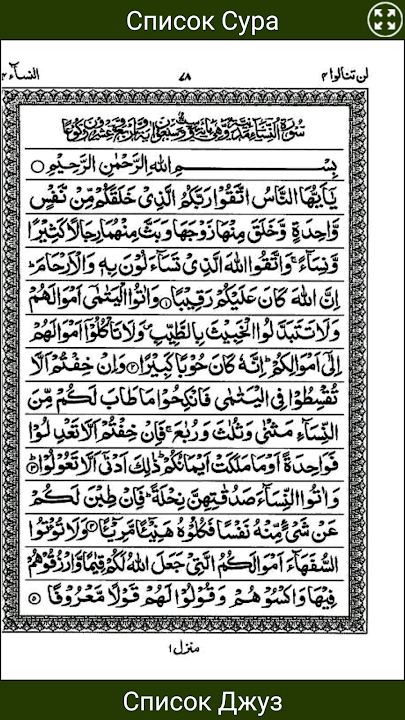 Список Сура
النساء ٤
٧٨
لن تنالوا ٤
سورة النساء مدنية وهي مائة وسبعون اية واربع وعشرون ركوعا
بِسْمِ اللهِ الرَّحْمٰنِ الرَّحِيْمِ
يٰۤاَيُّهَا النَّاسُ اتَّقُوْا رَبَّكُمُ الَّذِىْ خَلَقَكُمْ مِّنْ نَّفْسٍ
وَّاحِدَةٍ وَّخَلَقَ مِنْهَا زَوْجَهَا وَبَثَّ مِنْهُمَا رِجَالًا كَثِيْرًا
وَّنِسَآءً ۚ وَاتَّقُوا اللهَ الَّذِىْ تَسَآءَلُوْنَ بِهٖ وَالْاَرْحَامَ ؕ
اِنَّ اللهَ كَانَ عَلَيْكُمْ رَقِيْبًا ﴿۱﴾ وَاٰتُوا الْيَتٰمٰۤى اَمْوَالَهُمْ
وَلَا تَتَبَدَّلُوا الْخَبِيْثَ بِالطَّيِّبِ ۪ وَلَا تَاْكُلُوْۤا اَمْوَالَهُمْ
اِلٰۤى اَمْوَالِكُمْ ؕ اِنَّهٗ كَانَ حُوْبًا كَبِيْرًا ﴿۲﴾ وَاِنْ خِفْتُمْ اَلَّا
تُقْسِطُوْا فِى الْيَتٰمٰى فَانْكِحُوْا مَا طَابَ لَكُمْ مِّنَ
النِّسَآءِ مَثْنٰى وَثُلٰثَ وَرُبٰعَ ۚ فَاِنْ خِفْتُمْ اَلَّا تَعْدِلُوْا
فَوَاحِدَةً اَوْ مَا مَلَكَتْ اَيْمَانُكُمْ ؕ ذٰلِكَ اَدْنٰۤى اَلَّا تَعُوْلُوْا ﴿۳﴾
وَاٰتُوا النِّسَآءَ صَدُقٰتِهِنَّ نِحْلَةً ؕ فَاِنْ طِبْنَ لَكُمْ
عَنْ شَىْءٍ مِّنْهُ نَفْسًا فَكُلُوْهُ هَنِيْٓئًا مَّرِيْٓئًا ﴿۴﴾ وَلَا تُؤْتُوا
السُّفَهَآءَ اَمْوَالَكُمُ الَّتِىْ جَعَلَ اللهُ لَكُمْ قِيٰمًا وَّارْزُقُوْهُمْ
فِيْهَا وَاكْسُوْهُمْ وَقُوْلُوْا لَهُمْ قَوْلًا مَّعْرُوْفًا ﴿۵﴾
منزل ١
Список Джуз